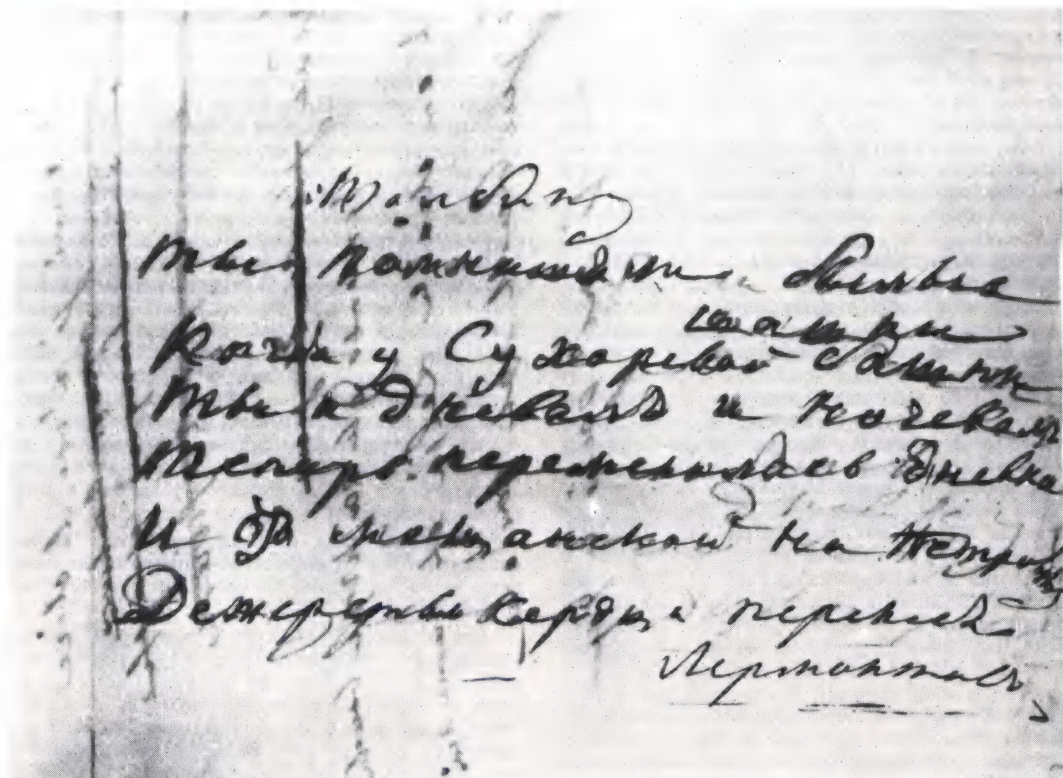 Толбину
Ты помнишь ли былые
шашни
Когда у Сухаревой башни
Ты и дневалъ и ночевалъ
Теперь переменилась дневка
И мещанской на Петровку
Дежурство сердца
Лермонтовъ